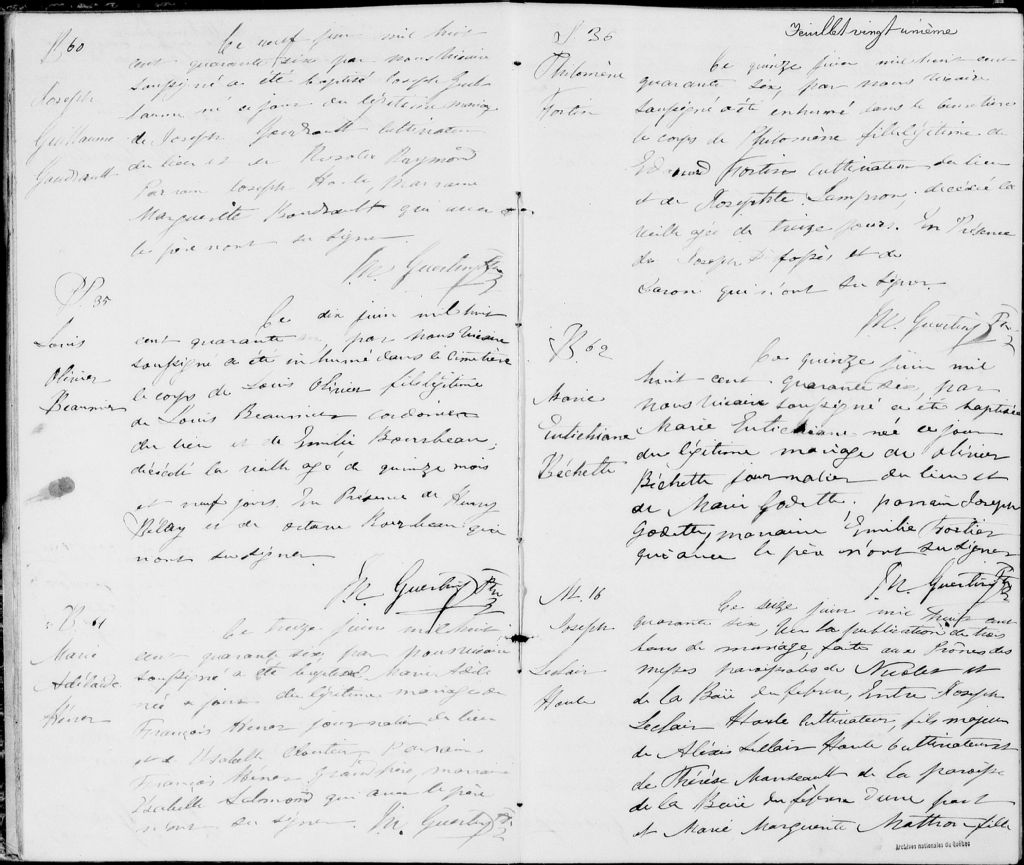 B 60
Joseph
Guillaume
Gaudrault
Ce neuf juin mil huit
cent quarante six par nous vicaire
soussigné a été baptisé Joseph Guil
laume né ce jour du légitime mariage
de Joseph Gaudrault cultivateur
du lieu et de Rosalie Raymond
Parrain Joseph Houle, Marraine
Marguerite Gaudrault qui avec
le père n'ont su signer
M. Guertin Ptre
S. 35
Louis
Olivier
Beaunier
Ce dix juin mil huit
cent quarante six par nous vicaire
soussigné a été inhumé dans le cimetière
le corps de Louis Olivier fils légitime
de Louis Beaunier cordonnier
du lieu et de Emilie Bourbeau,
décédé la veille agé de quinze mois
et neuf jours. En Présence de Henry
et de octave Bourbeau qui
n'ont su signer
M. Guertin Ptre
B 61
Marie
Adélaïde
Ce treize juin mil huit
cent quarante six par nous vicaire
soussigné a été baptisé Marie Adéla
née ce jour du légitime mariage de
François journalier du lieu
et de Elizabeth Parrain
François Grand père, marraine
qui avec le père
n'ont su signer. M. Guertin Ptre
Feuillet vingt unième
S. 36
Philomène
Fortin
Ce quinze juin mil huit cent
quarante six, par nous vicaire
soussigné a été enhumé dans le cimetière
le corps de Philomène fille légitime de
Edouard Fortin cultivateur du lieu
et de Josephte Lampron, décédée la
veille agée de treize jours. En Présence
de Joseph et de
qui n'ont su signer
M. Guertin Ptre
B 62
Marie
Eutichiane
Béchette
Ce quinze juin mil
huit cent quarante six, par
nous vicaire soussigné a été baptisée
Marie Eutichiane née ce jour
du légitime mariage de olivier
Béchette journalier du lieu et
de Marie Godette; parrain Joseph
Godette, marraine Emilie Fortier
qui avec le père n'ont su signer
M. Guertin Ptre
M. 16
Joseph
Leclair
Houle
Ce seize juin mil huit cent
quarante six, vu la publication de trois
bans de mariage, faite aux Prônes des
messes paroissiales de Nicolet et
de la Baie du febvre, Entre Joseph
Leclair Houle cultivateur, fils majeur
de Alexis Leclair Houle cultivateur et
de Thérèse Manseault de la paroisse
de la Baie du febvre d'une part
et Marie Marguerite fille
Archives nationales du Québec